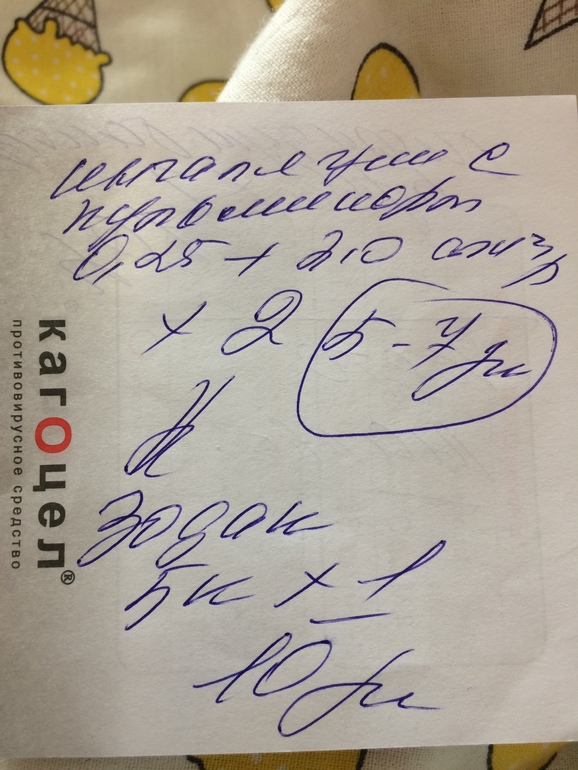 ингаляции с
пульмикорт
0,25 + 2,0 физ р
x 2 5-7 дн
Зодак
5к x 1
10 дн
кагОцел®
противовирусное средство